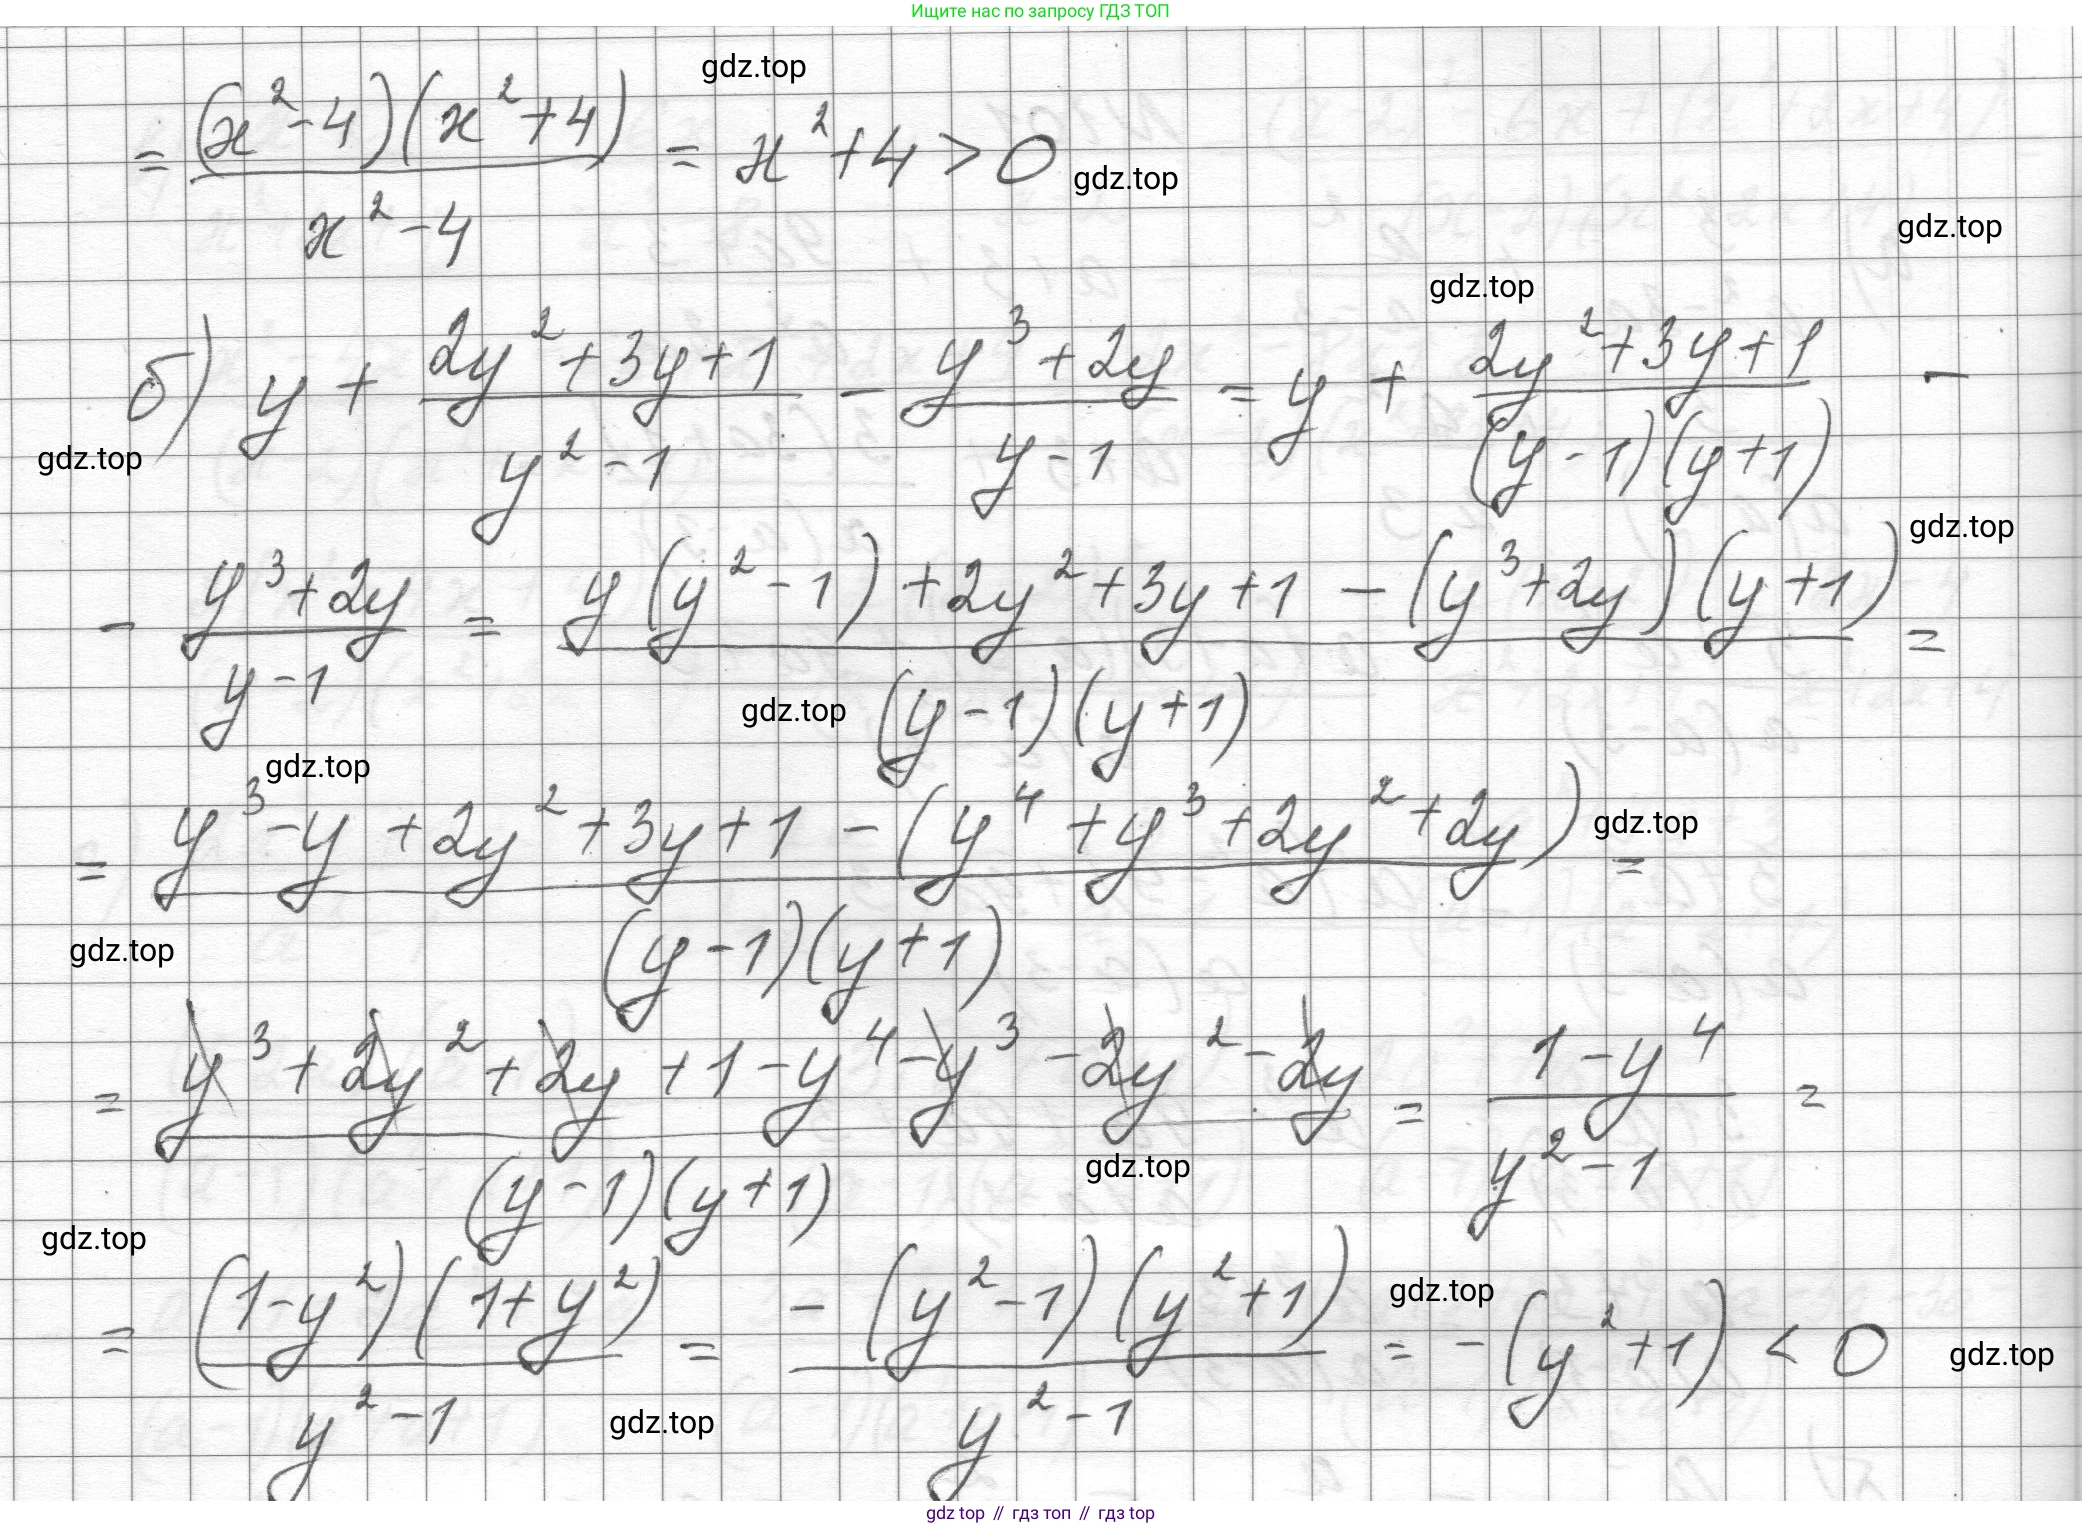 Ищите нас по запросу ГДЗ ТОП
gdz.top
= (x²-4)(x²+4) / x²-4 = x²+4 > 0
gdz.top
gdz.top
gdz.top
б) y + 2y²+3y+1 / y²-1 - y³+2y / y-1 = y + 2y²+3y+1 / (y-1)(y+1) -
gdz.top
gdz.top
- y³+2y / y-1 = y(y²-1)+2y²+3y+1-(y³+2y)(y+1) / (y-1)(y+1) =
gdz.top
gdz.top
= y³-y+2y²+3y+1-(y⁴+y³+2y²+2y) / (y-1)(y+1) =
gdz.top
gdz.top
= y³+2y²+2y+1-y⁴-y³-2y²-2y / (y-1)(y+1) = 1-y⁴ / y²-1 =
gdz.top
gdz.top
= (1-y²)(1+y²) / y²-1 = -(y²-1)(y²+1) / y²-1 = -(y²+1) < 0
gdz.top
gdz.top
gdz.top
gdz top // гдз топ // гдз top